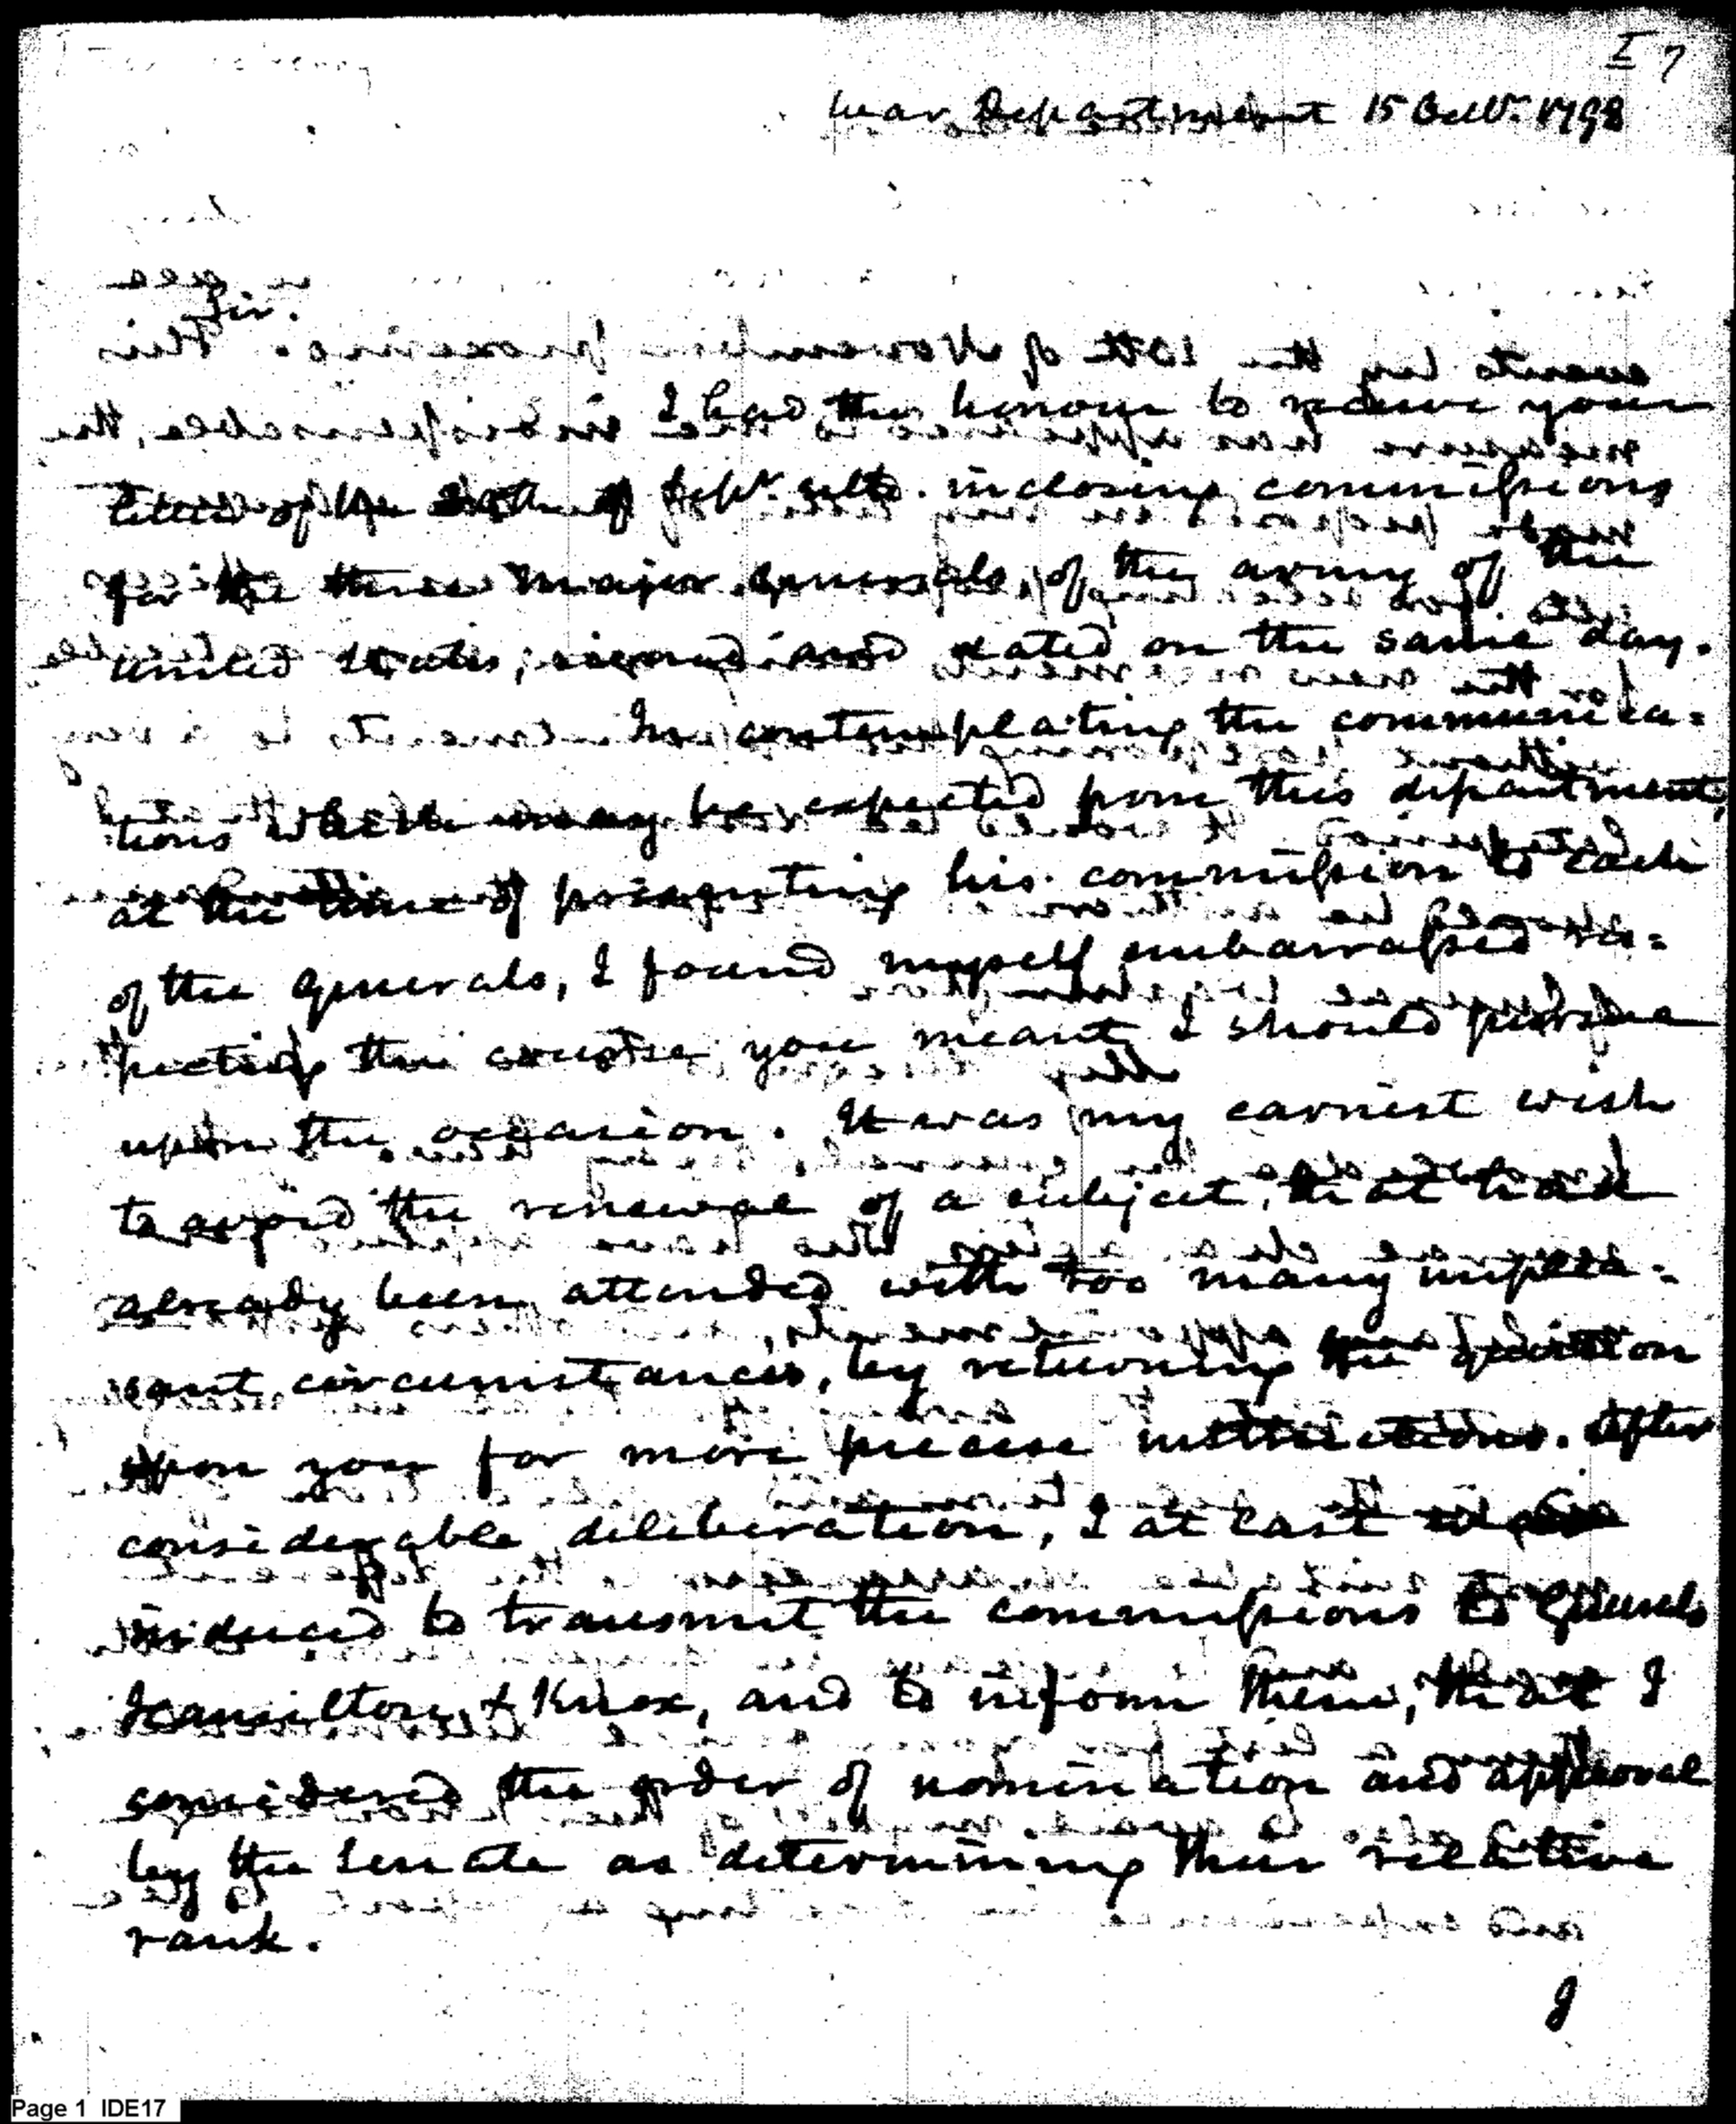 I 7
War Department 15 Octr. 1798
Sir.
I had the honour to receive your
letter of the 30th of Sepr. ulto. inclosing commissions
for the three Major Generals, of the army of the
United States, signed and dated on the same day.
In contemplating the communica=
tions which may be expected from this department,
at the time of presenting his commission to each
of the Generals, I found myself embarrassed res=
pecting the course you meant I should pursue
upon the occasion. It was my earnest wish
to avoid the renewal of a subject, that had
already been attended with too many unplea=
sant circumstances, by returning the question
upon you for more precise instructions. After
considerable deliberation, I at last
induced to transmit the commissions to Generals
Hamilton & Knox, and to inform them, that I
considered the order of nomination and approval
by the Senate as determining their relative
rank.
I
Page 1 IDE17